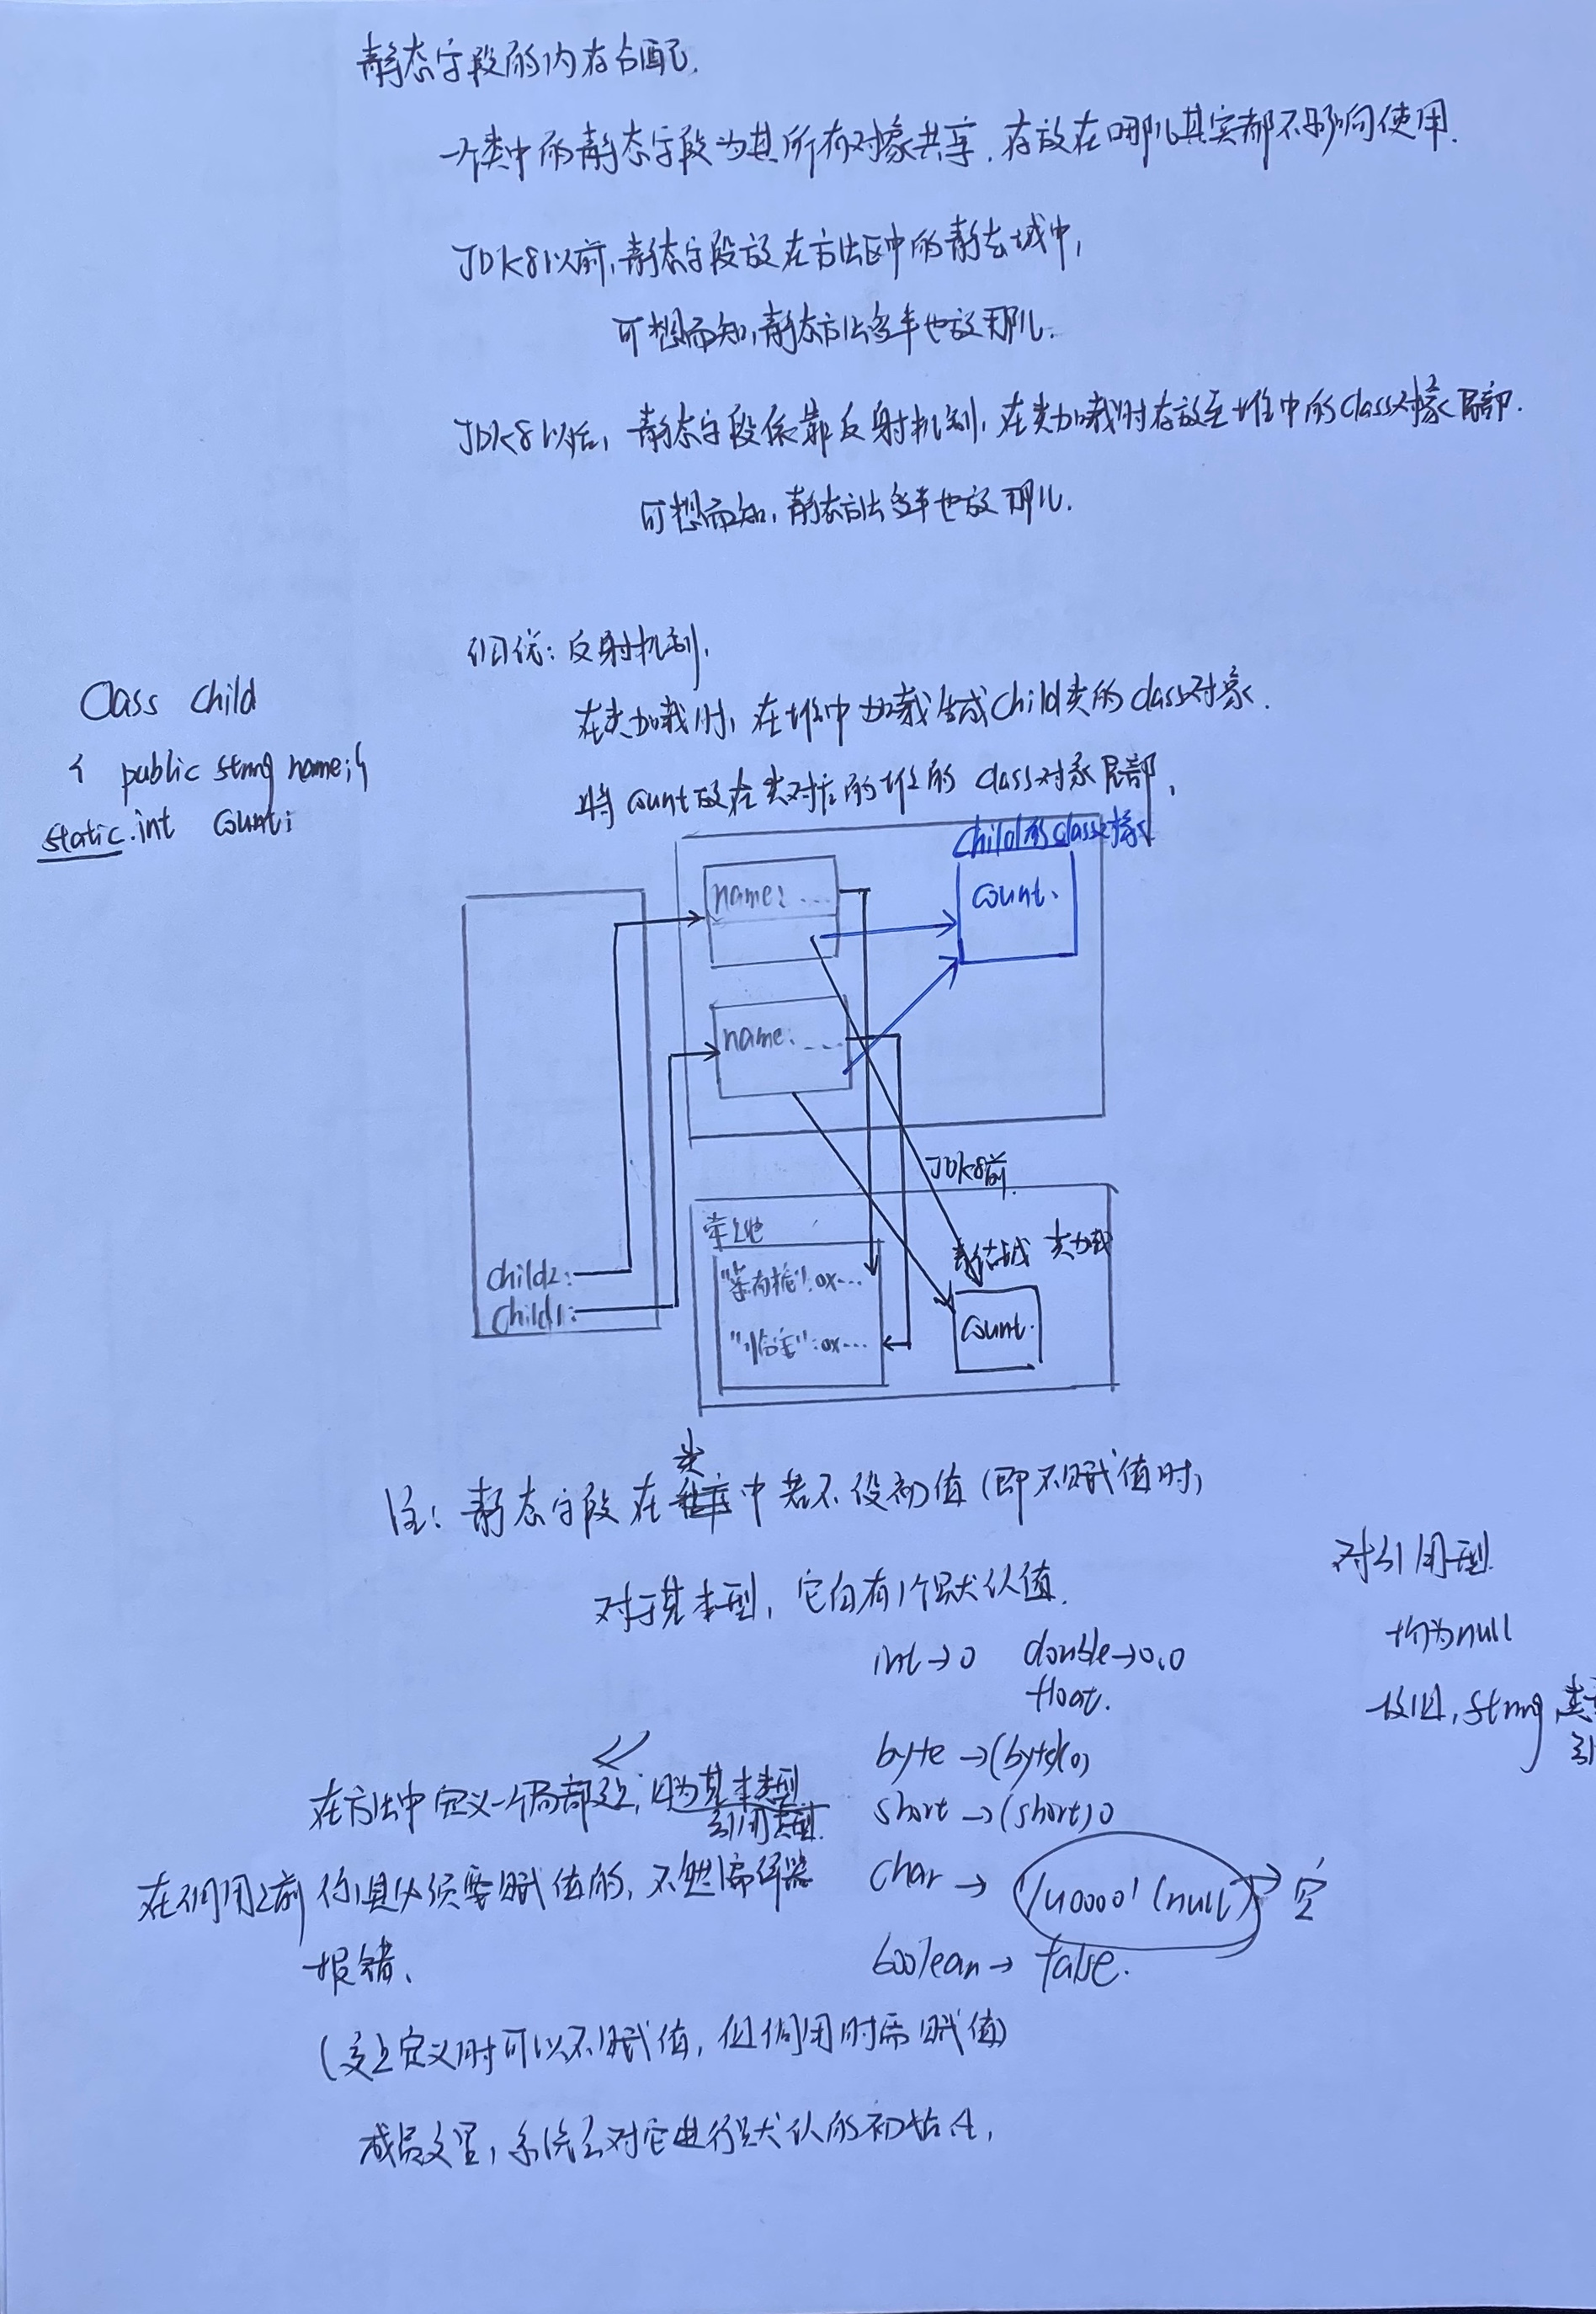 静态字段的内存分配.
一个类中的静态字段为其所有对象共享.存放在哪儿其实都不影响使用.
JDK8以前,静态字段放在方法区中的静态域中,
可想而知,静态方法多半也放那儿.
JDK8以后,静态字段依靠反射机制,在类加载时存放至堆中的class对象尾部.
可想而知,静态方法多半也放那儿.
反射机制,
Class Child
{ public string name;
static int count;
在类加载时,在堆中加载生成Child类的class对象.
将count放在类对应的堆的class对象尾部,
Child的class对象
name: ...
count.
name: ...
JDK8前
静态域 类加载
child2:
child1:
":0x...
":0x...
count.
注:静态字段在类中若不设初值(即不赋值时)
对于基本型,它自有1个默认值.
对引用型
均为null
数组,string,
int→0 double→0.0
float.
byte→(byte)0
short→(short)0
char→'\u0000'(null)→空
boolean→false.
在方法中定义一个局部变量, 为基本类型
引用类型.
在 用之前你 必须要赋值的,不然编译器
报错、
(变量定义时可以不赋值,但 用时需赋值)
成员变量,系统会对它进行默认的初始化,